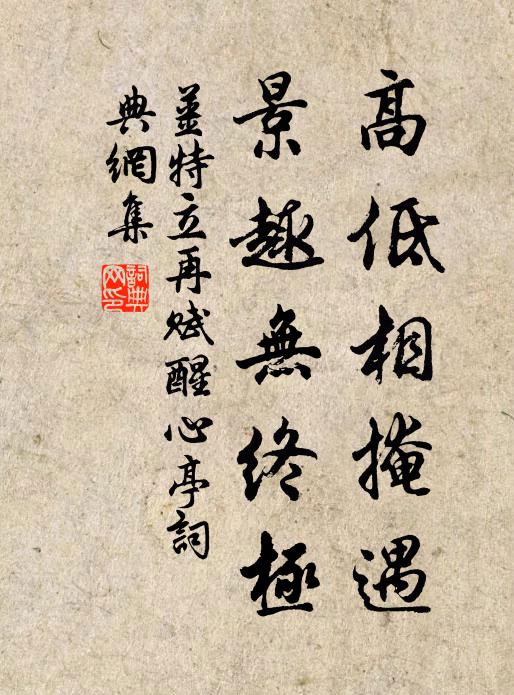 高低相掩遇
景趣無終極
姜特立再赋醒心亭詞
典網集
詞典
网印